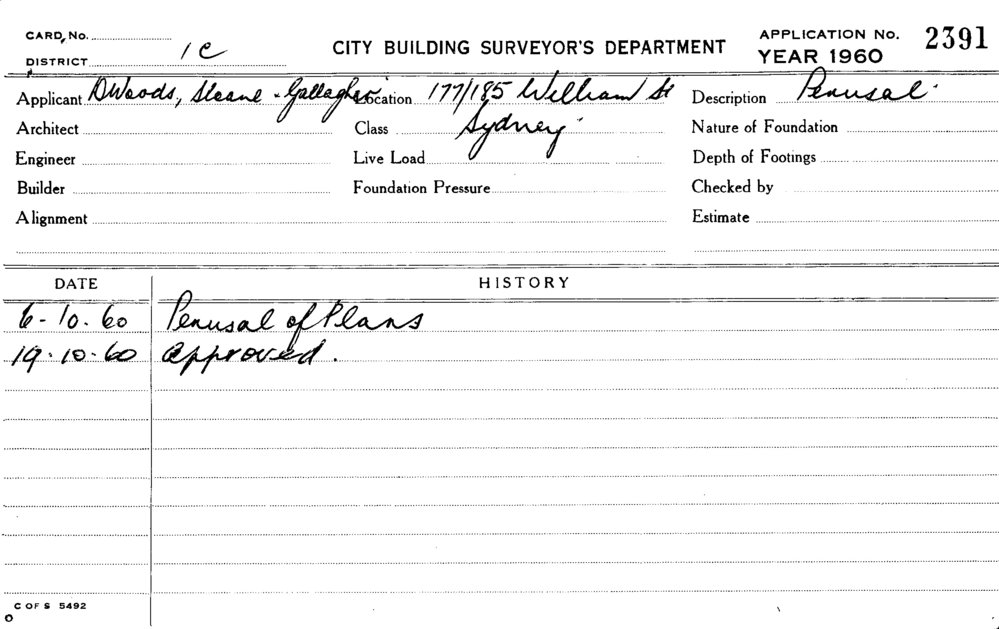 CARD, No.
DISTRICT 1C
CITY BUILDING SURVEYOR'S DEPARTMENT
APPLICATION No. 2391
YEAR 1960
Applicant D Woods, Sloane - Gallagher Location 177/185 William St Description Perusal.
Architect Class Sydney Nature of Foundation
Engineer Live Load Depth of Footings
Builder Foundation Pressure Checked by
Alignment Estimate
DATE HISTORY
6-10.60 Perusal of Plans
19.10.60 approved.
C OF S 5492